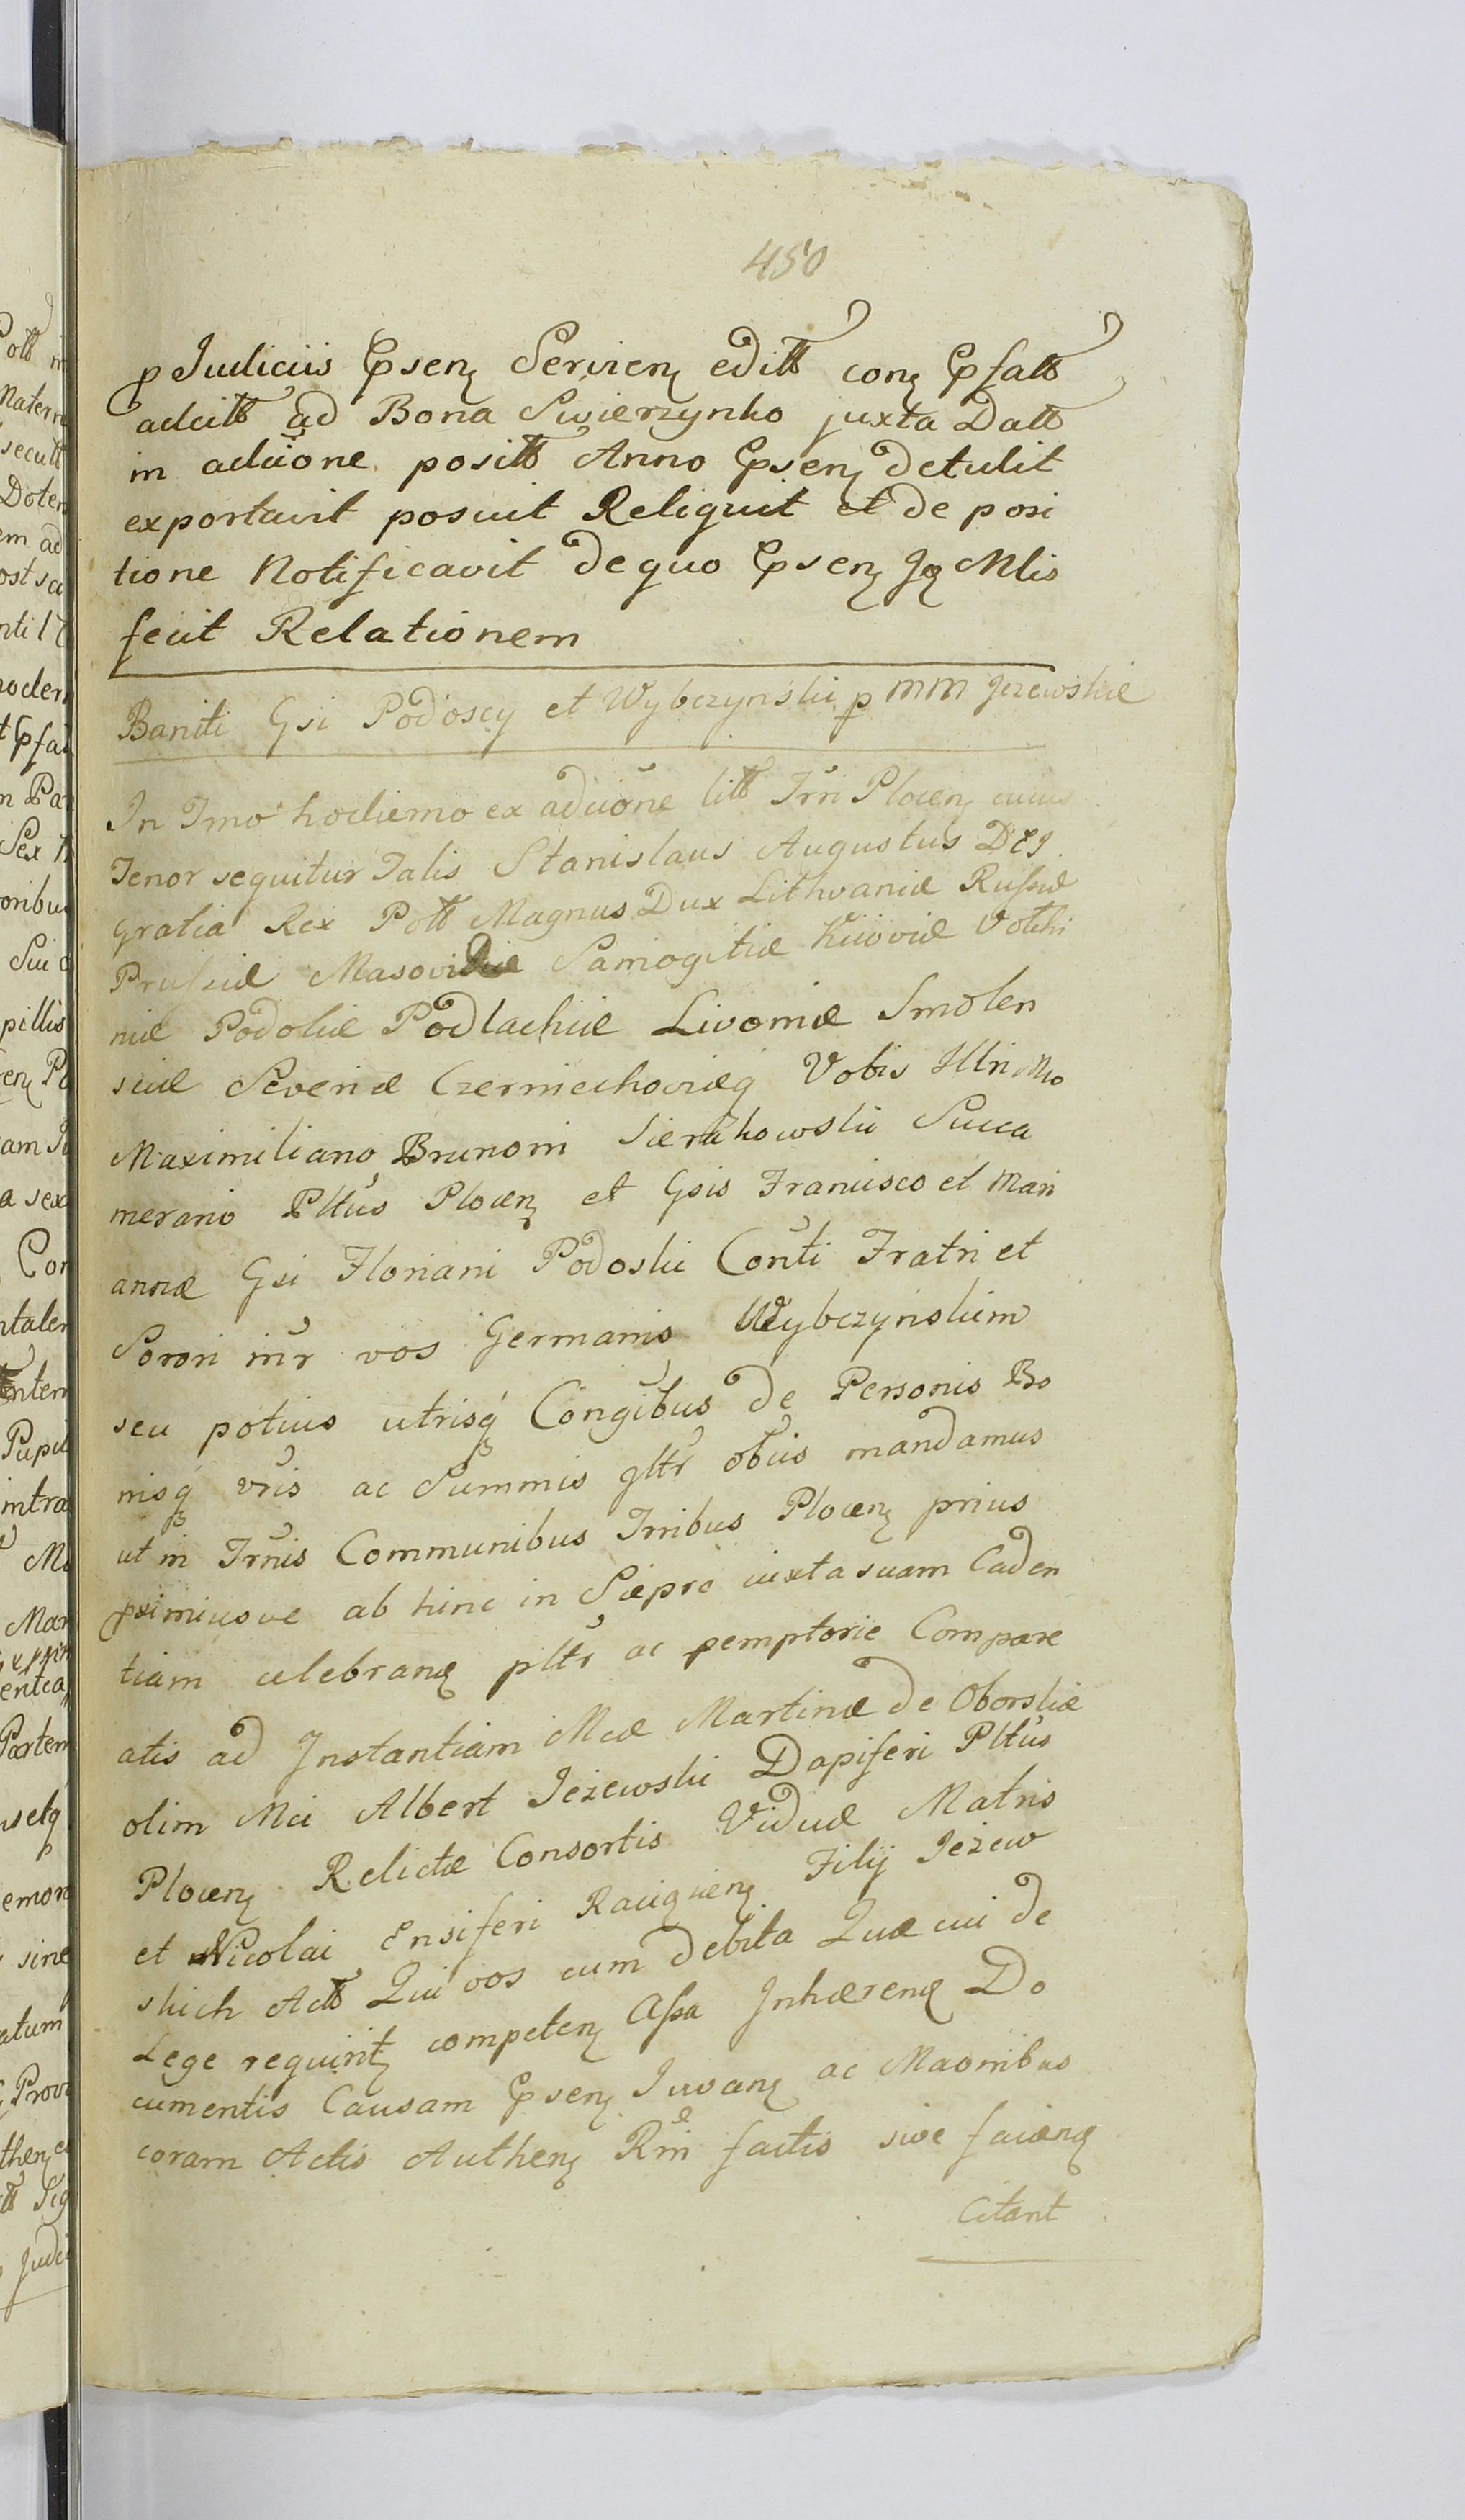 450
p Judiciis Psen Servien editt con Psatt
adcitt ad Bona Swierzynko juxta Datt
in adcione positt Anno Psen detulit
exportavit posuit Reliquit et de posi
tione Notificavit de quo Psen Jq Mlis
fecit Relationem
Baniti Gsi Podoscy et Wybczynski p MM Jezewskie
In Tmo hodierno ex adcione litt Trri Plocen cuius
Tenor sequitur Talis Stanislaus Augustus DEI
gratia Rex Poll Magnus Dux Lithvaniæ Russiæ
Prussiæ Masoviæ Samogitiæ Kiioviæ Volhi
niæ Podoliæ Podlachiæ Livoniæ Smolen
sciæ Severiæ Czerniechoviæq Vobis Illri Mco
Maximiliano Brunoni Sierakowski Succa
merario Pltus Plocen et Gsis Francisco et Mari
annæ Gsi Floriani Podoski Conti Fratri et
Sorori inr vos Germanis Wybczynskim
seu potius utrisq Congibus de Personis Bo
nisq vris ac Summis gltr obus mandamus
ut in Trnis Communibus Trribus Plocen prius
pximiusve ab hinc in Sieprc iuxta suam Caden
tiam celebrand pltr ac pemptorie Compare
atis ad Instantiam Mcæ Martinæ de Oborskie
olim Mci Albert Jeżewski Dapiferi Pltus
Plocen Relictæ Consortis Viduæ Matris
et Nicolai Ensiferi Raciązien Filij Jeżew
skich Actt Qui vos cum debita Quæ cui de
Lege requirit competen Assa Inhærend Do
cumentis Causam Psen Iuvan ac Maonibus
coram Actis Authen Rni factis sive faciend
Citant